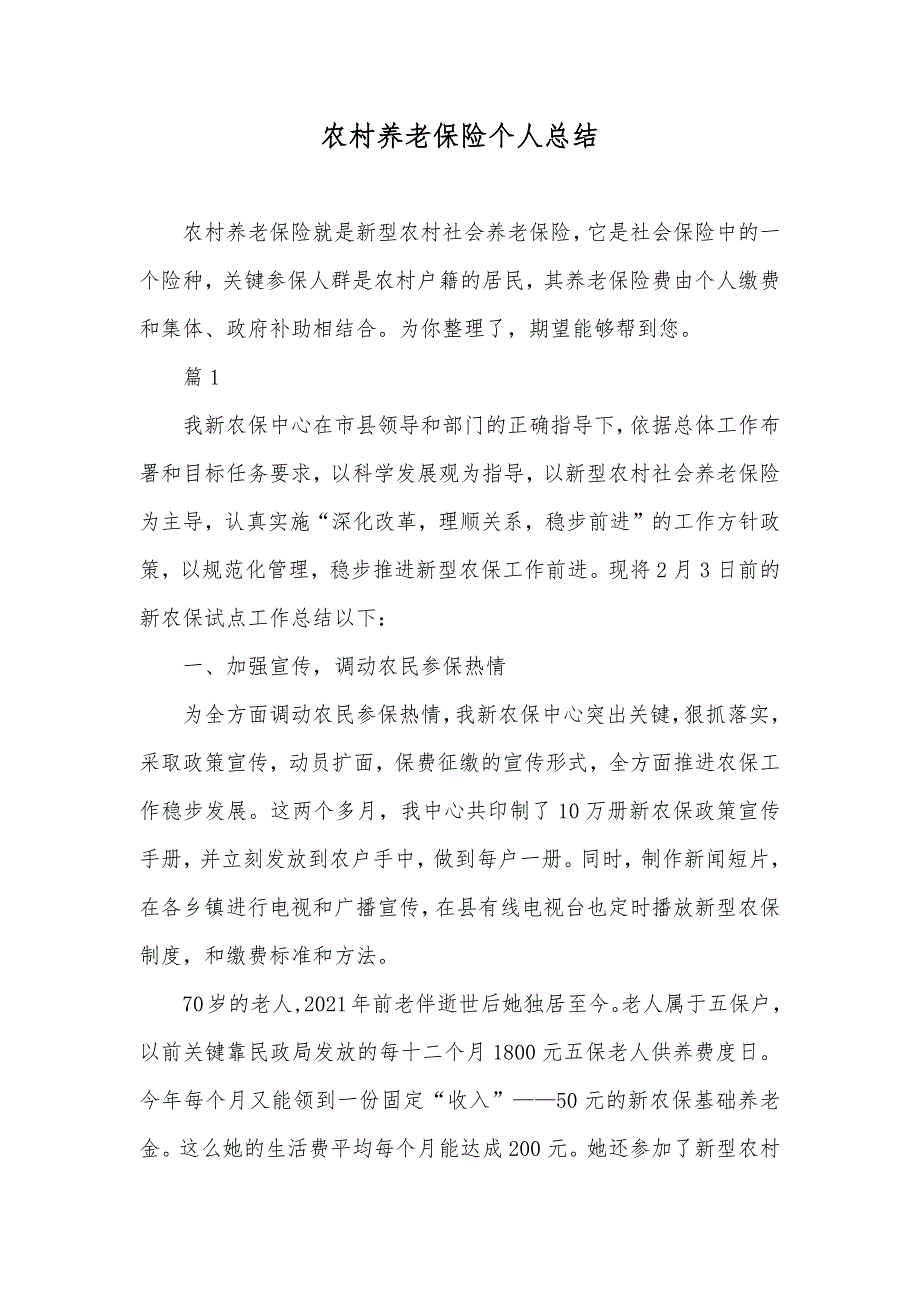 农村养老保险个人总结
农村养老保险就是新型农村社会养老保险，它是社会保险中的一
个险种，关键参保人群是农村户籍的居民，其养老保险费由个人缴费
和集体、政府补助相结合。为你整理了，期望能够帮到您。
篇 1
我新农保中心在市县领导和部门的正确指导下，依据总体工作布
署和目标任务要求，以科学发展观为指导，以新型农村社会养老保险
为主导，认真实施“深化改革，理顺关系，稳步前进”的工作方针政
策，以规范化管理，稳步推进新型农保工作前进。现将 2 月 3 日前的
新农保试点工作总结以下：
一、加强宣传，调动农民参保热情
为全方面调动农民参保热情，我新农保中心突出关键，狠抓落实，
采取政策宣传，动员扩面，保费征缴的宣传形式，全方面推进农保工
作稳步发展。这两个多月，我中心共印制了 10 万册新农保政策宣传
手册，并立刻发放到农户手中，做到每户一册。同时，制作新闻短片，
在各乡镇进行电视和广播宣传，在县有线电视台也定时播放新型农保
制度，和缴费标准和方法。
70 岁的老人,2021 年前老伴逝世后她独居至今。老人属于五保户，
以前关键靠民政局发放的每十二个月 1800 元五保老人供养费度日。
今年每个月又能领到一份固定“收入”——50 元的新农保基础养老
金。这么她的生活费平均每个月能达成 200 元。她还参加了新型农村